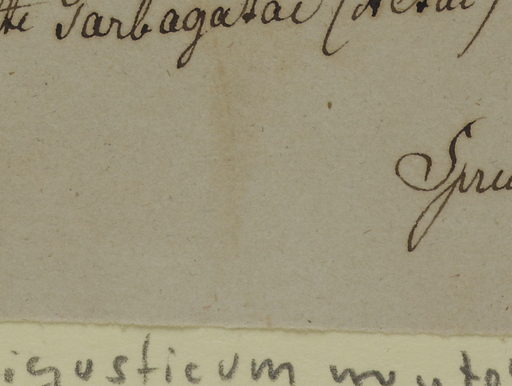 Tarbagatai (Altai)
Spru
igusticum mut